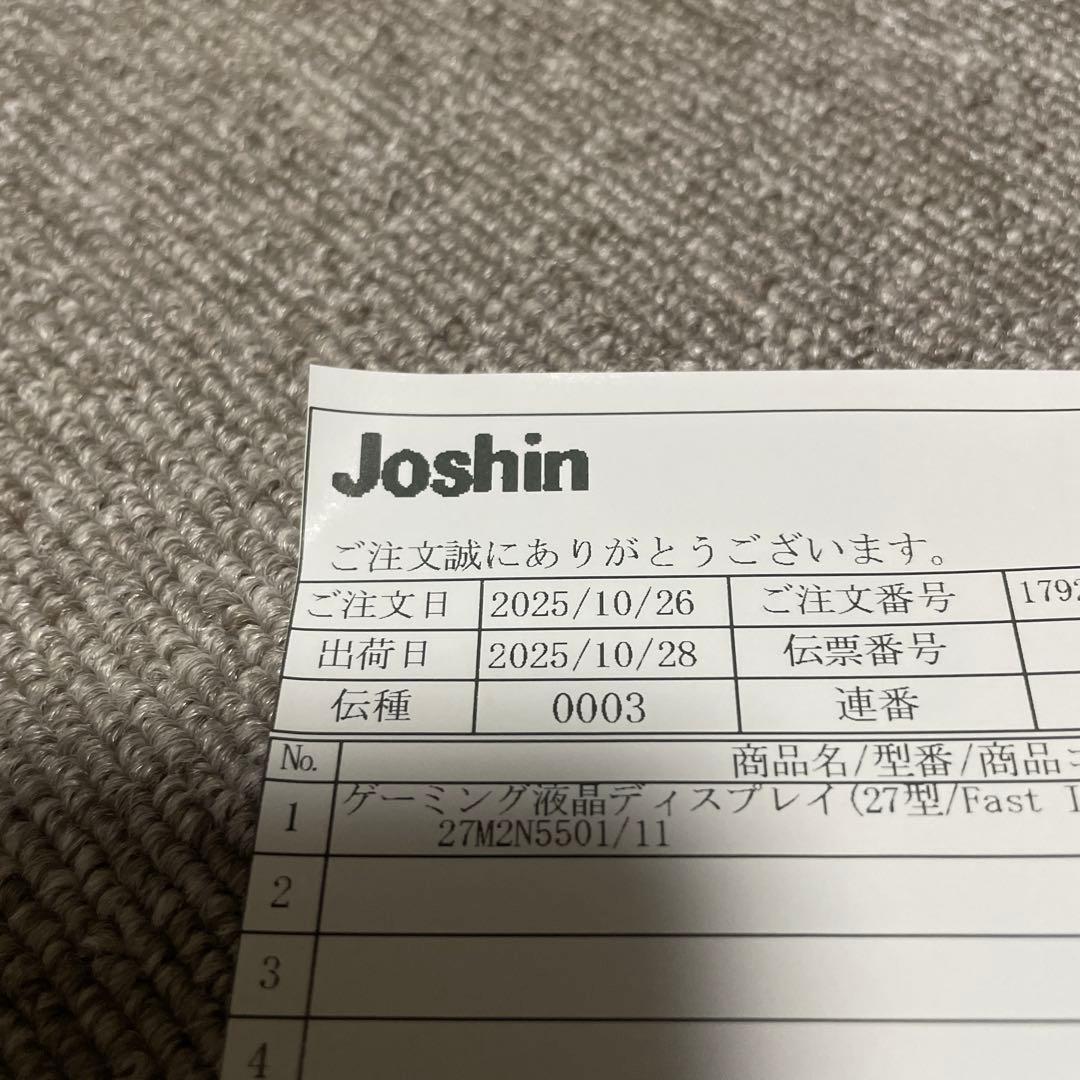 Joshin
ご注文誠にありがとうございます。
ご注文日 2025/10/26 ご注文番号 1792
出荷日 2025/10/28 伝票番号
伝種 0003 連番
No. 商品名/型番/商品コ
1 ゲーミング液晶ディスプレイ(27型/Fast I
27M2N5501/11
2
3
4